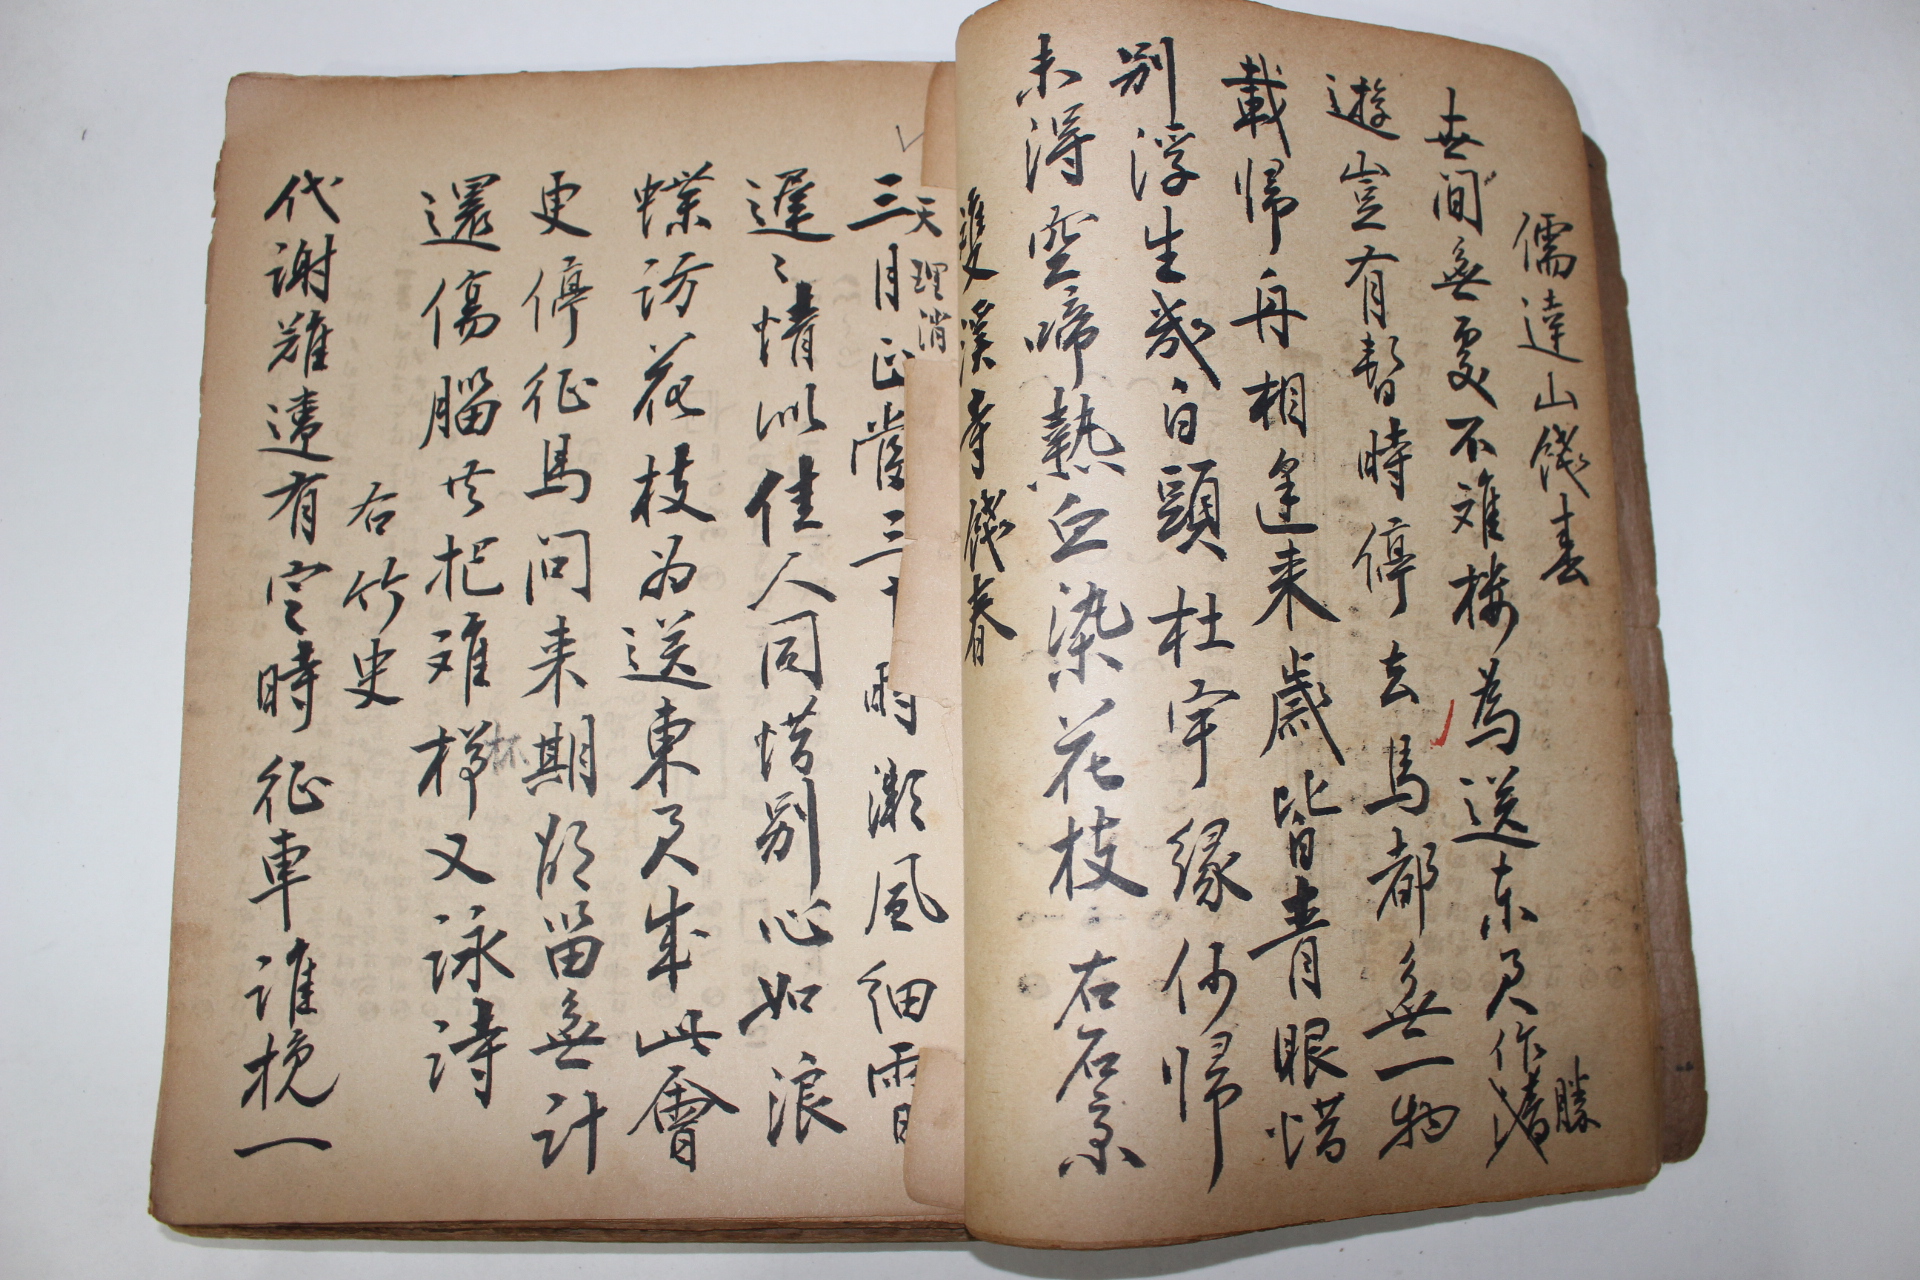 儒達山餞春
世間無處不難樓為送東君作勝
遊豈有暫時停去馬都無一物
載歸舟相逢来歲皆青眼惜
別浮生幾白頭杜宇緣何歸
未得空啼熱血染花枝
右石泉
雙溪寺餞春
天理消
三月正當三十時漸風細雨
遲〻情似佳人同惜別心如浪
蝶訪花枝为送東君成此會
更停征馬問来期欲留無計
還傷腦共把難杯又詠詩
右竹史
代謝難違有定時征車誰挽一